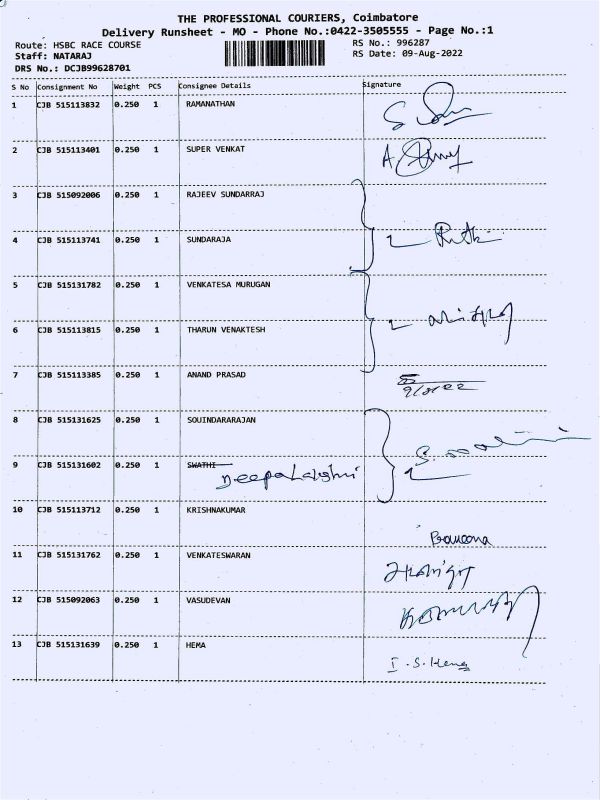 THE PROFESSIONAL COURIERS, Coimbatore
Delivery Runsheet - MO - Phone No.:0422-3505555 - Page No.:1
Route: HSBC RACE COURSE RS No.: 996287
Staff: NATARAJ RS Date: 09-Aug-2022
DRS No.: DCJB99628701
S No Consignment No Weight PCS Consignee Details Signature
1 CJB 515113832 0.250 1 RAMANATHAN
2 CJB 515113401 0.250 1 SUPER VENKAT
3 CJB 515092006 0.250 1 RAJEEV SUNDARRAJ
4 CJB 515113741 0.250 1 SUNDARAJA
5 CJB 515131782 0.250 1 VENKATESA MURUGAN
6 CJB 515113815 0.250 1 THARUN VENAKTESH
7 CJB 515113385 0.250 1 ANAND PRASAD
8 CJB 515131625 0.250 1 SOUINDARARAJAN
9 CJB 515131602 0.250 1 SWATHI
DeepaLakshmi
10 CJB 515113712 0.250 1 KRISHNAKUMAR
11 CJB 515131762 0.250 1 VENKATESWARAN
12 CJB 515092063 0.250 1 VASUDEVAN
13 CJB 515131639 0.250 1 HEMA